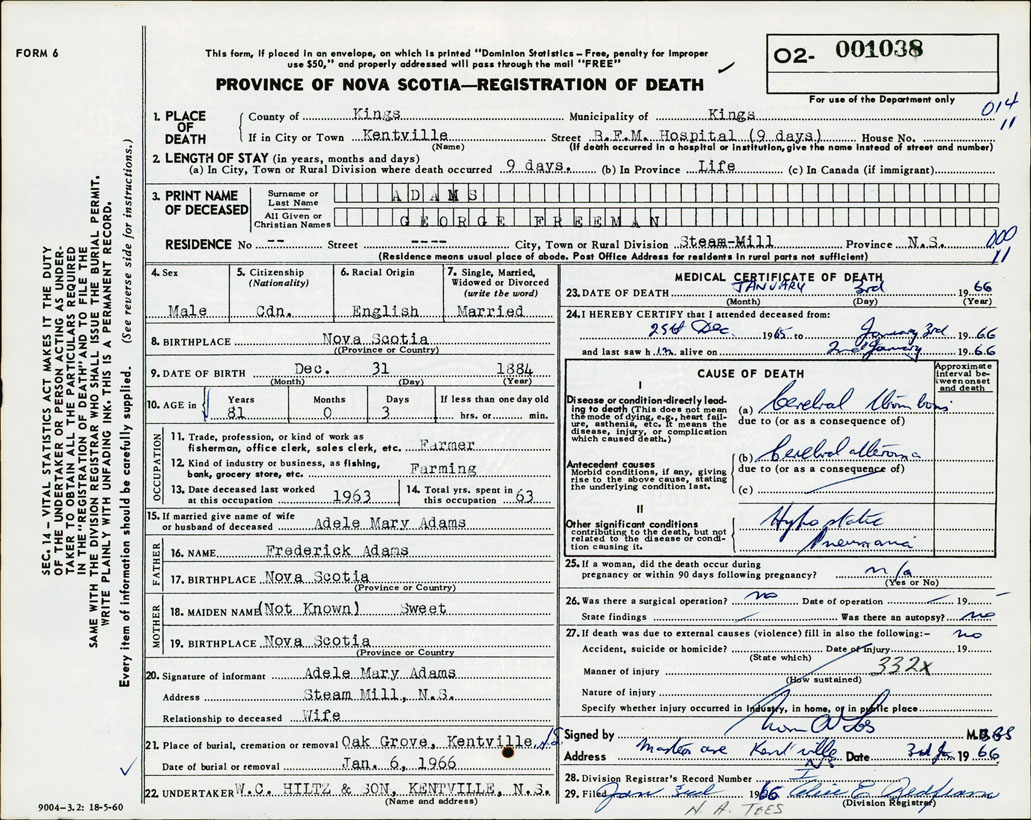 FORM 6
This form, if placed in an envelope, on which is printed "Dominion Statistics – Free, penalty for improper
use $50," and properly addressed will pass through the mail "FREE"
PROVINCE OF NOVA SCOTIA—REGISTRATION OF DEATH
02- 001038
For use of the Department only
014
11
1. PLACE OF DEATH
County of Kings Municipality of Kings
If in City or Town Kentville Street B.F.M. Hospital (9 days) House No.
(Name) (If death occurred in a hospital or institution, give the name instead of street and number)
2. LENGTH OF STAY (in years, months and days)
(a) In City, Town or Rural Division where death occurred 9 days. (b) In Province Life (c) In Canada (if immigrant)
3. PRINT NAME OF DECEASED
Surname or Last Name ADAMS
All Given or Christian Names GEORGE FREEMAN
RESIDENCE No -- Street ---- City, Town or Rural Division Steam-Mill Province N.S.
000
11
(Residence means usual place of abode. Post Office Address for residents in rural parts not sufficient)
4. Sex Male
5. Citizenship (Nationality) Cdn.
6. Racial Origin English
7. Single, Married, Widowed or Divorced (write the word) Married
8. BIRTHPLACE Nova Scotia
(Province or Country)
9. DATE OF BIRTH Dec. 31 1884
(Month) (Day) (Year)
10. AGE in Years 81 Months 0 Days 3 If less than one day old hrs. or min.
OCCUPATION
11. Trade, profession, or kind of work as
fisherman, office clerk, sales clerk, etc. Farmer
12. Kind of industry or business, as fishing,
bank, grocery store, etc. Farming
13. Date deceased last worked at this occupation 1963
14. Total yrs. spent in this occupation 63
15. If married give name of wife
or husband of deceased Adele Mary Adams
FATHER
16. NAME Frederick Adams
17. BIRTHPLACE Nova Scotia
(Province or Country)
MOTHER
18. MAIDEN NAME (Not Known) Sweet
19. BIRTHPLACE Nova Scotia
(Province or Country
20. Signature of informant Adele Mary Adams
Address Steam Mill, N.S.
Relationship to deceased Wife
21. Place of burial, cremation or removal Oak Grove, Kentville, N.S.
Date of burial or removal Jan. 6, 1966
22. UNDERTAKER W.C. HILTZ & SON, KENTVILLE, N.S.
(Name and address)
MEDICAL CERTIFICATE OF DEATH
23. DATE OF DEATH JANUARY 3rd 1966
(Month) (Day) (Year)
24. I HEREBY CERTIFY that I attended deceased from:
25th Dec. 1965 to January 3rd 1966
and last saw him alive on 2nd January 1966
CAUSE OF DEATH
Approximate interval between onset and death
I
Disease or condition-directly leading to death (This does not mean
the mode of dying, e.g., heart failure, asthenia, etc. It means the
disease, injury, or complication
which caused death.)
(a) Cerebral Thrombosis
due to (or as a consequence of)
Antecedent causes
Morbid conditions, if any, giving
rise to the above cause, stating
the underlying condition last.
(b) Cerebral atheroma
due to (or as a consequence of)
(c)
II
Other significant conditions
contributing to the death, but not
related to the disease or condition causing it.
Hypostatic
Pneumonia
25. If a woman, did the death occur during
pregnancy or within 90 days following pregnancy? n/a
(Yes or No)
26. Was there a surgical operation? no Date of operation 19
State findings Was there an autopsy? no
27. If death was due to external causes (violence) fill in also the following:– no
Accident, suicide or homicide? Date of Injury 19
(State which)
Manner of injury 332x
(How sustained)
Nature of injury
Specify whether injury occurred in Industry, in home, or in public place
Signed by M.D.
Address Kentville NS Date 3rd Jan 1966
28. Division Registrar's Record Number
29. Filed Jan 3rd 1966
(Division Registrar)
SEC. 14 – VITAL STATISTICS ACT MAKES IT THE DUTY
OF THE UNDERTAKER OR PERSON ACTING AS UNDER-
TAKER TO OBTAIN ALL THE PARTICULARS REQUIRED
IN THE "REGISTRATION OF DEATH" AND TO FILE THE
SAME WITH THE DIVISION REGISTRAR WHO SHALL ISSUE THE BURIAL PERMIT.
WRITE PLAINLY WITH UNFADING INK. THIS IS A PERMANENT RECORD.
Every item of information should be carefully supplied. (See reverse side for instructions.)
9004-3.2: 18-5-60